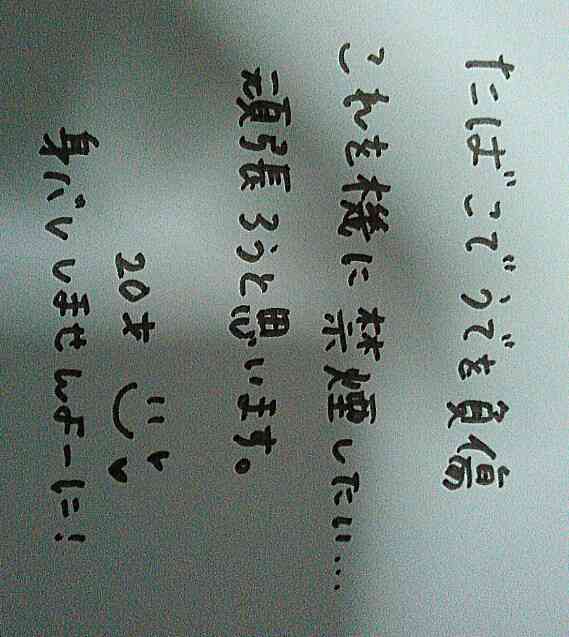 たばこでうでを負傷
これを機に禁煙したい…
頑張ろうと思います。
20才
身バレしませんよーに!